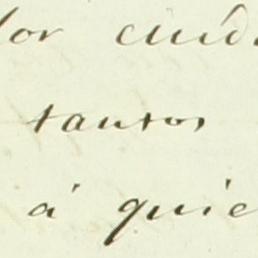 lor cuid
tantos
á quie